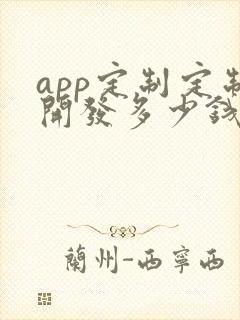 app定制定制
開發多少錢
蘭州-西寧西